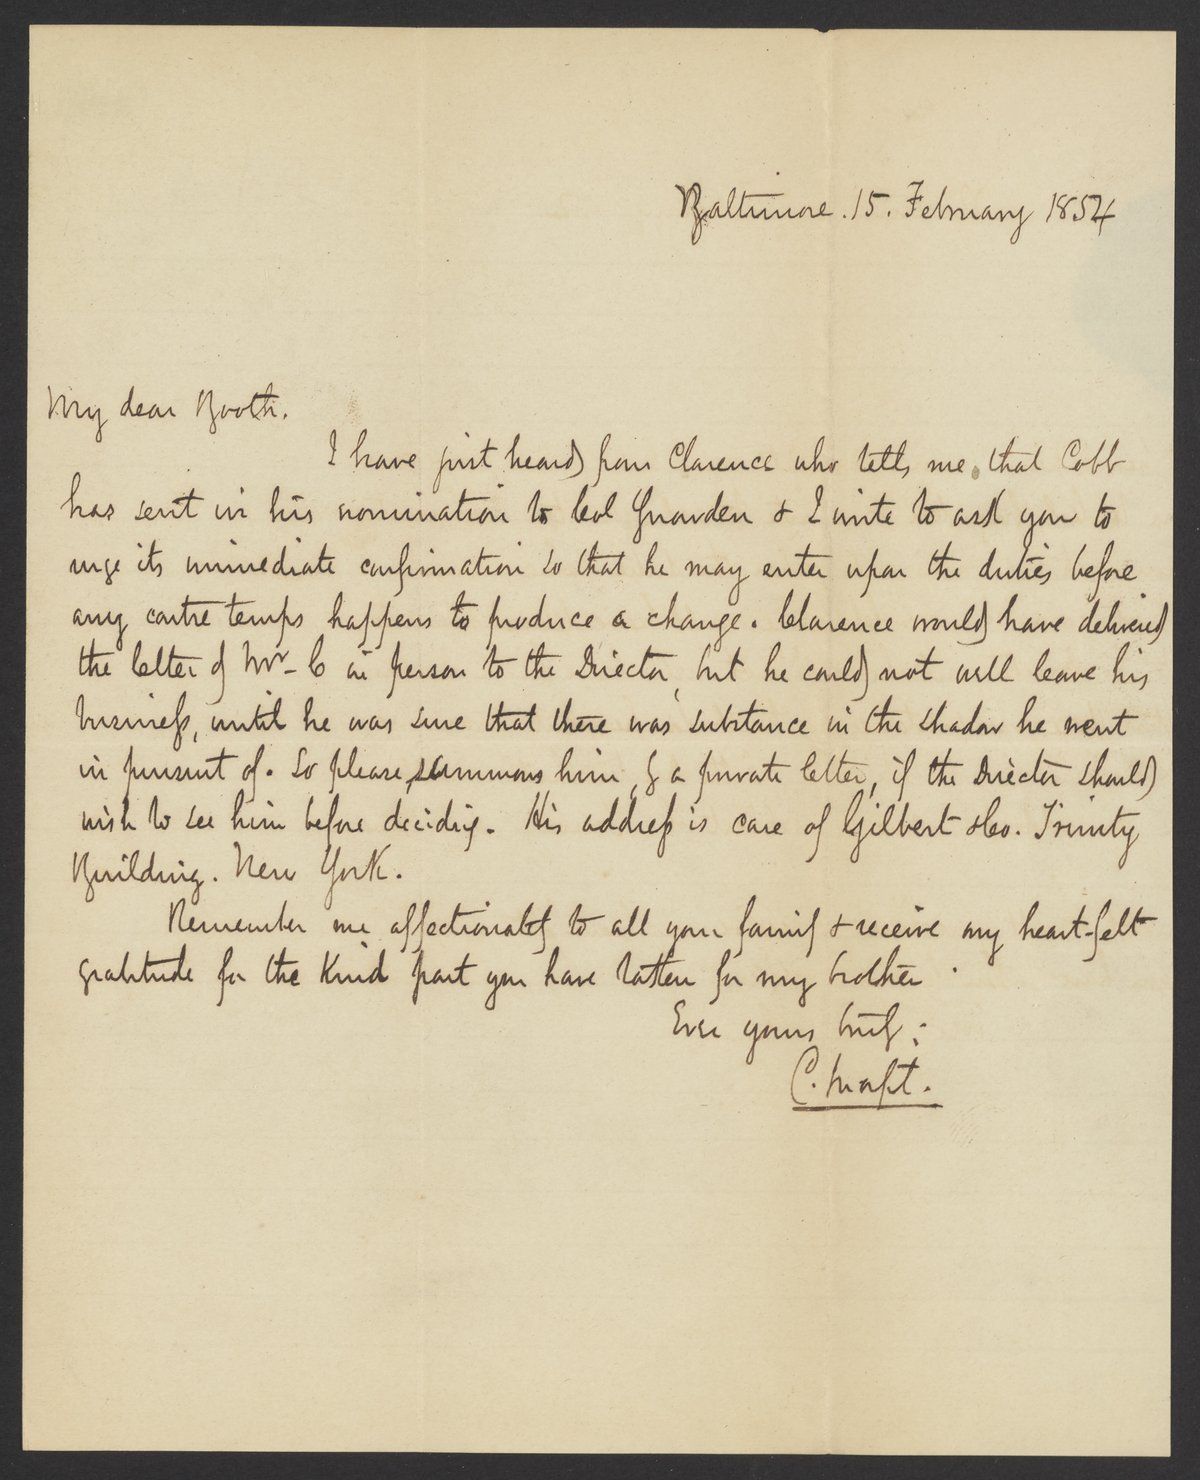 Baltimore. 15. February 1854
My dear Booth.
I have just heard from Clarence who tells me that Cobb
has sent in his nomination to Col Snowden & I write to ask you to
urge its immediate confirmation so that he may enter upon the duties before
any contre temps happens to produce a change. Clarence would have delivered
the letter of Mr C in person to the Director, but he could not well leave his
business, until he was sure that there was substance in the shadow he went
in pursuit of. So please, summons him, by a private letter, if the Director should
wish to see him before deciding. His address is care of Gilbert & Co. Trinity
Building. New York.
Remember me affectionately to all your family & receive my heart-felt
gratitude for the kind part you have taken for my brother.
Ever yours truly;
C.